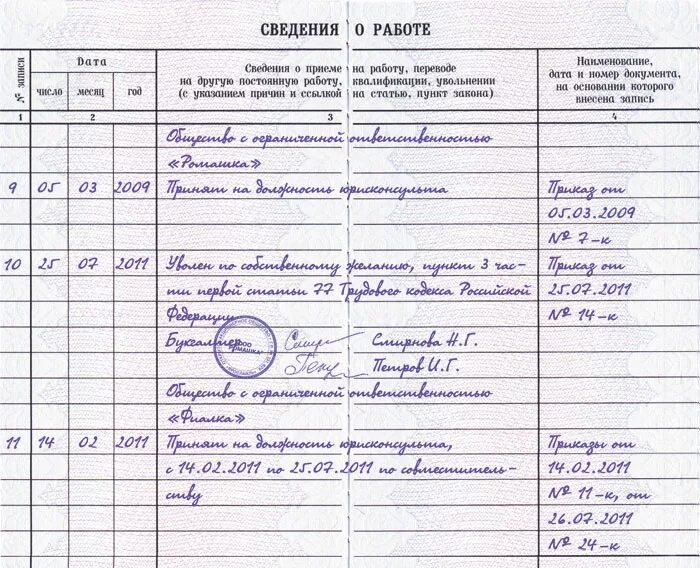 СВЕДЕНИЯ О РАБОТЕ
№ записи
Дата
число
месяц
год
Сведения о приеме на работу, переводе
на другую постоянную работу, квалификации, увольнении
(с указанием причин и ссылкой на статью, пункт закона)
Наименование,
дата и номер документа,
на основании которого
внесена запись
1 2 3 4
Общество с ограниченной ответственностью
«Ромашка»
9 05 03 2009 Принят на должность юрисконсульта Приказ от
05.03.2009
№ 7-к
10 25 07 2011 Уволен по собственному желанию, пункт 3 час- Приказ от
ти первой статьи 77 Трудового кодекса Российской 25.07.2011
Федерации № 14-к
Бухгалтер Смирнова Н.Г.
Петров И.Г.
ООО
"РОМАШКА"
Общество с ограниченной ответственностью
«Фиалка»
11 14 02 2011 Принят на должность юрисконсульта, Приказы от
с 14.02.2011 по 25.07.2011 по совместитель- 14.02.2011
ству № 11-к, от
26.07.2011
№ 24-к